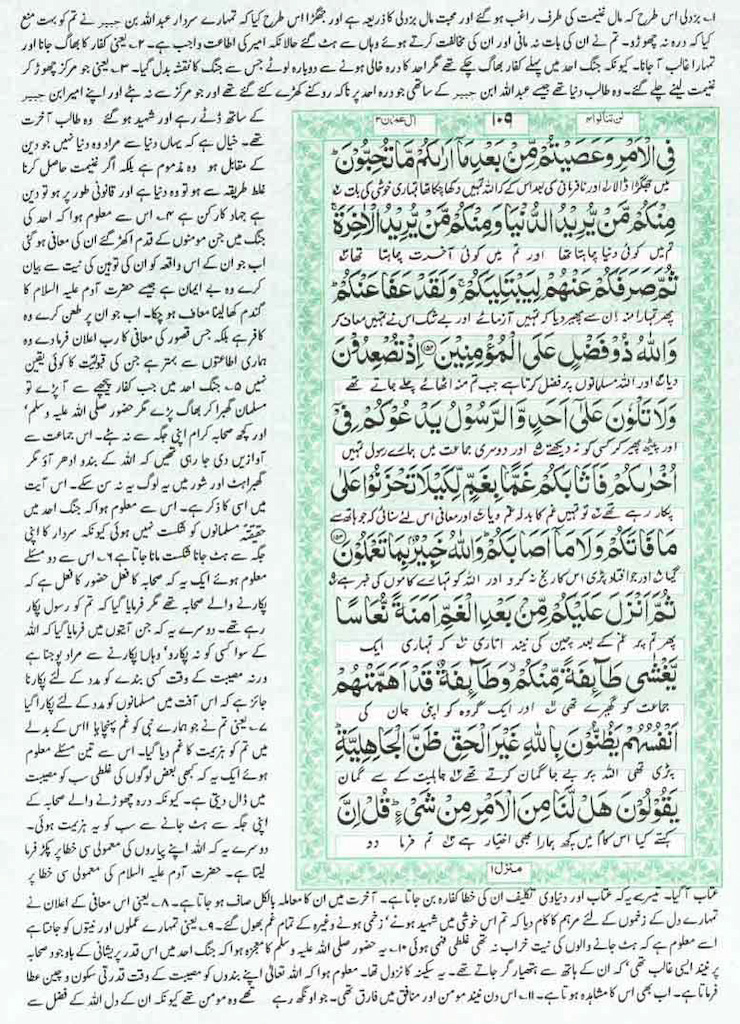 ۱؎ بزدلی اس طرح کہ مال غنیمت کی طرف راغب ہو گئے اور محبت مال بزدلی کا ذریعہ ہے اور جھگڑا اس طرح کیا کہ تمہارے سردار عبداللہ بن جبیر نے تم کو بہت منع
کیا کہ درہ نہ چھوڑو۔ تم نے ان کی بات نہ مانی اور ان کی مخالفت کرتے ہوئے وہاں سے ہٹ گئے حالانکہ امیر کی اطاعت واجب ہے۔ ۲؎ یعنی کفار کا بھاگ جانا اور
تمہارا غالب آ جانا۔ کیونکہ جنگ احد میں پہلے کفار بھاگ چکے تھے مگر احد کا درہ خالی ہونے سے دوبارہ لوٹے جس سے جنگ کا نقشہ بدل گیا۔ ۳؎ یعنی جو مرکز چھوڑ کر
غنیمت لینے چلے گئے۔ وہ طالب دنیا تھے جیسے عبداللہ ابن جبیر کے ساتھی جو درہ احد پر ناکہ روکنے کھڑے کئے گئے تھے اور جو مرکز سے نہ ہٹے اور اپنے امیر ابن جبیر
لن تنالوا۴ ۱۰۹ ال عمران۳
فِی الْاَمْرِ وَعَصَیْتُمْ مِّنْۢ بَعْدِ مَاۤ اَرٰىكُمْ مَّا تُحِبُّوْنَ ؕ
میں جھگڑا ڈالا اور نافرمانی کی بعد اس کے کہ اللہ تمہیں دکھا چکا تھا تمہاری خوشی کی بات
مِنْكُمْ مَّنْ یُّرِیْدُ الدُّنْیَا وَمِنْكُمْ مَّنْ یُّرِیْدُ الْاٰخِرَةَ ۚ
تم میں کوئی دنیا چاہتا تھا اور تم میں کوئی آخرت چاہتا تھا
ثُمَّ صَرَفَكُمْ عَنْهُمْ لِیَبْتَلِیَكُمْ ۚ وَلَقَدْ عَفَا عَنْكُمْ ؕ
پھر تمہارا منہ ان سے پھیر دیا کہ تمہیں آزمائے اور بے شک اس نے تمہیں معاف کر
وَاللّٰهُ ذُوْ فَضْلٍ عَلَی الْمُؤْمِنِیْنَ ﴿۱۵۲﴾ اِذْ تُصْعِدُوْنَ
دیا اور اللہ مسلمانوں پر فضل کرتا ہے جب تم منہ اٹھائے چلے جاتے تھے
وَلَا تَلْوٗنَ عَلٰۤی اَحَدٍ وَّالرَّسُوْلُ یَدْعُوْكُمْ فِیْۤ
اور پیٹھ پھیر کر کسی کو نہ دیکھتے ۵ اور دوسری جماعت میں ہمارے رسول تمہیں
اُخْرٰىكُمْ فَاَثَابَكُمْ غَمًّۢا بِغَمٍّ لِّكَیْلَا تَحْزَنُوْا عَلٰی
پکار رہے تھے تو تمہیں غم کا بدلہ غم دیا اور معافی اس لئے سنائی کہ جو ہاتھ سے
مَا فَاتَكُمْ وَلَا مَاۤ اَصَابَكُمْ ؕ وَاللّٰهُ خَبِیْرٌۢ بِمَا تَعْمَلُوْنَ ﴿۱۵۳﴾
گیا اور جو افتاد پڑی اس کا رنج نہ کرو اور اللہ کو تمہارے کاموں کی خبر ہے
ثُمَّ اَنْزَلَ عَلَیْكُمْ مِّنْۢ بَعْدِ الْغَمِّ اَمَنَةً نُّعَاسًا
پھر تم پر غم کے بعد چین کی نیند اتاری کہ تمہاری ایک
یَّغْشٰی طَآىِٕفَةً مِّنْكُمْ ۙ وَطَآىِٕفَةٌ قَدْ اَهَمَّتْهُمْ
جماعت کو گھیرے تھی اور ایک گروہ کو اپنی جان کی
اَنْفُسُهُمْ یَظُنُّوْنَ بِاللّٰهِ غَیْرَ الْحَقِّ ظَنَّ الْجَاهِلِیَّةِ ؕ
پڑی تھی اللہ پر بے جا گمان کرتے تھے جاہلیت کے سے گمان
یَقُوْلُوْنَ هَلْ لَّنَا مِنَ الْاَمْرِ مِنْ شَیْءٍ ؕ قُلْ اِنَّ
کہتے کیا اس کام میں کچھ ہمارا بھی اختیار ہے تم فرما دو
منزل۱
کے ساتھ ڈٹے رہے اور شہید ہو گئے وہ طالب آخرت
تھے۔ خیال ہے کہ یہاں دنیا سے مراد وہ دنیا نہیں جو دین
کے مقابل ہو وہ مذموم ہے بلکہ اگر غنیمت حاصل کرنا
غلط طریقہ سے ہو تو وہ دنیا ہے اور قانونی طور پر ہو تو دین
ہے جہاد کا رکن ہے ۴؎ اس سے معلوم ہوا کہ احد کی
جنگ میں جن مومنوں کے قدم اکھڑ گئے ان کی معافی ہو گئی
اب جو ان کے اس واقعہ کو ان کی توہین کی نیت سے بیان
کرے وہ بے ایمان ہے جیسے حضرت آدم علیہ السلام کا
گندم کھا لینا معاف ہو چکا۔ اب جو ان پر طعن کرے وہ
کافر ہے بلکہ جس قصور کی معافی کا رب اعلان فرما دے وہ
ہماری اطاعتوں سے بہتر ہے جن کی قبولیت کا کوئی یقین
نہیں ۵؎ جنگ احد میں جب کفار پیچھے سے آ پڑے تو
مسلمان گھبرا کر بھاگ پڑے مگر حضور صلی اللہ علیہ وسلم'
اور کچھ صحابہ کرام اپنی جگہ سے نہ ہٹے۔ اس جماعت سے
آوازیں دی جا رہی تھیں کہ اللہ کے بندو ادھر آؤ مگر
گھبراہٹ اور شور میں یہ لوگ یہ نہ سن سکے۔ اس آیت
میں اسی کا ذکر ہے۔ اس سے معلوم ہوا کہ جنگ احد میں
حقیقۃ مسلمانوں کو شکست نہیں ہوئی کیونکہ سردار کا اپنی
جگہ سے ہٹ جانا شکست مانا جاتا ہے ۶؎ اس سے دو مسئلے
معلوم ہوئے ایک یہ کہ صحابہ کا فعل حضور کا فعل ہے کہ
پکارنے والے صحابہ تھے مگر فرمایا گیا کہ تم کو رسول پکار
رہے تھے۔ دوسرے یہ کہ جن آیتوں میں فرمایا گیا کہ اللہ
کے سوا کسی کو نہ پکارو' وہاں پکارنے سے مراد پوجنا ہے
ورنہ مصیبت کے وقت کسی بندے کو مدد کے لئے پکارنا
جائز ہے کہ اس آفت میں مسلمانوں کو مدد کے لئے پکارا گیا
۷؎ یعنی تم نے جو ہمارے نبی کو غم پہنچایا اس کے بدلے
میں تم کو ہزیمت کا غم دیا گیا۔ اس سے تین مسئلے معلوم
ہوئے ایک یہ کہ کبھی بعض لوگوں کی غلطی سب کو مصیبت
میں ڈال دیتی ہے۔ کیونکہ درہ چھوڑنے والے صحابہ کے
اپنی جگہ سے ہٹ جانے سے سب کو یہ ہزیمت ہوئی۔
دوسرے یہ کہ اللہ اپنے پیاروں کی معمولی سی خطا پر پکڑ فرما
لیتا ہے۔ حضرت آدم علیہ السلام کی معمولی سی خطا پر
عتاب آ گیا۔ تیسرے یہ کہ عتاب اور دنیاوی تکلیف ان کی خطا کا کفارہ بن جاتا ہے۔ آخرت میں ان کا معاملہ بالکل صاف ہو جاتا ہے۔ ۸؎ یعنی اس معافی کے اعلان نے
تمہارے دل کے زخموں کے لئے مرہم کا کام دیا کہ تم اس خوشی میں شہید ہونے' زخمی ہونے وغیرہ کے تمام غم بھول گئے۔ ۹؎ یعنی تمہارے عملوں اور نیتوں کو جانتا ہے
اسے معلوم ہے کہ ہٹ جانے والوں کی نیت خراب نہ تھی غلطی فہمی ہوئی ۱۰؎ یہ حضور صلی اللہ علیہ وسلم کا معجزہ ہوا کہ جنگ احد میں اس قدر پریشانی کے باوجود صحابہ
پر نیند ایسی غالب تھی' کہ ان کے ہاتھ سے ہتھیار گر جاتے تھے۔ یہ سکینہ کا نزول تھا۔ معلوم ہوا کہ اللہ تعالی اپنے بندوں کو مصیبت کے وقت قدرتی سکون و چین عطا
فرماتا ہے۔ اب بھی اس کا مشاہدہ ہوتا ہے۔ ۱۱؎ اس دن نیند مومن اور منافق میں فارق تھی۔ جو اونگھ رہے تھے وہ مومن تھے کیونکہ ان کے دل اللہ کے فضل سے